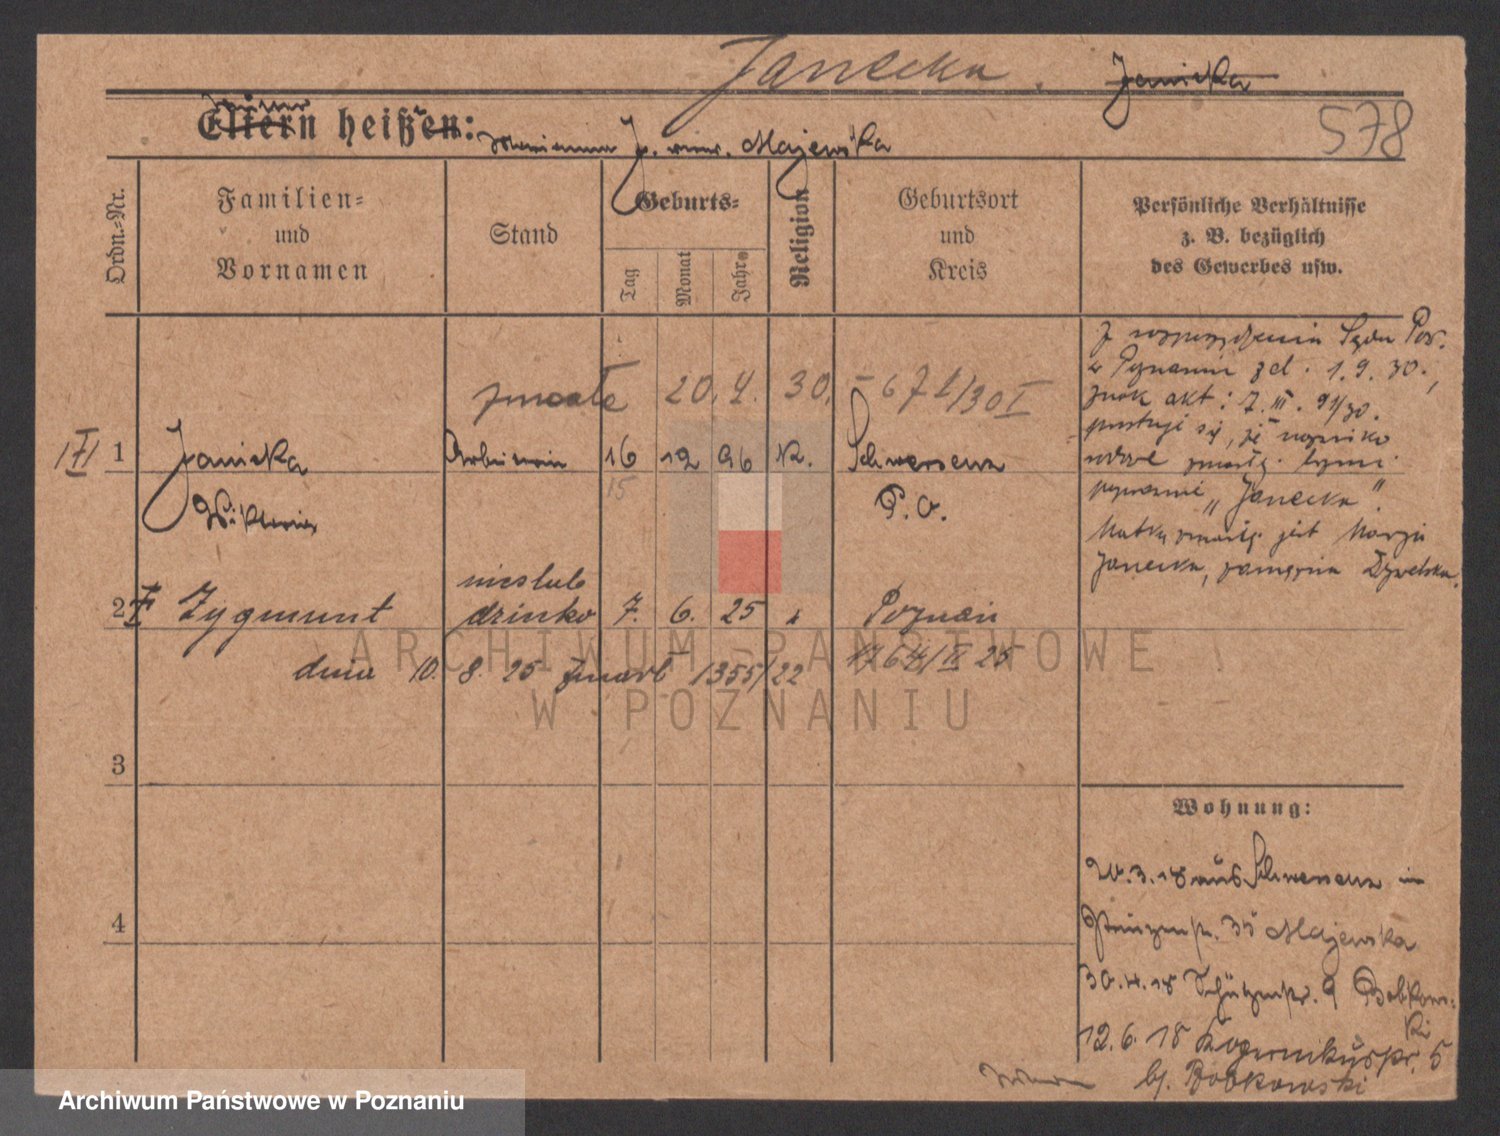 Janecka. Janicka
578
Eltern heißen: Marianna J. Majewska
Ordn.-Nr.
Familien-
und
Vornamen
Stand
Geburts-
Tag
Monat
Jahr
Religion
Geburtsort
und
Kreis
Persönliche Verhältnisse
z. B. bezüglich
des Gewerbes usw.
Z rozporządzenia Sądu Pow.
w Poznaniu z d. 1.9.30.,
znak akt: 7.III. 91/30.
prostuje się, że nazwisko
rodowe zmarłej brzmi
poprawnie „Janecka".
Matką zmarłej jest Marja
Janecka, zamężna
zmarła 20.4.30. - 671/30 I
1 Janicka Arbeiterin 16 12 96 K. Schwersenz
15
Wiktoria P. O.
nieślub
2 Zygmunt dziecko 7. 6. 25 Poznań
dnia 10. 8. 25 zmarł 1355/22 II 25
3
4
Wohnung:
20.3.18 aus Schwersenz in
35 Majewska
30.4.18 Schützenstr. 9 Bobkows-
ki
12.6.18 Kopernikusstr. 5
b/. Bobkowski
ARCHIWUM PAŃSTWOWE
W POZNANIU
Archiwum Państwowe w Poznaniu